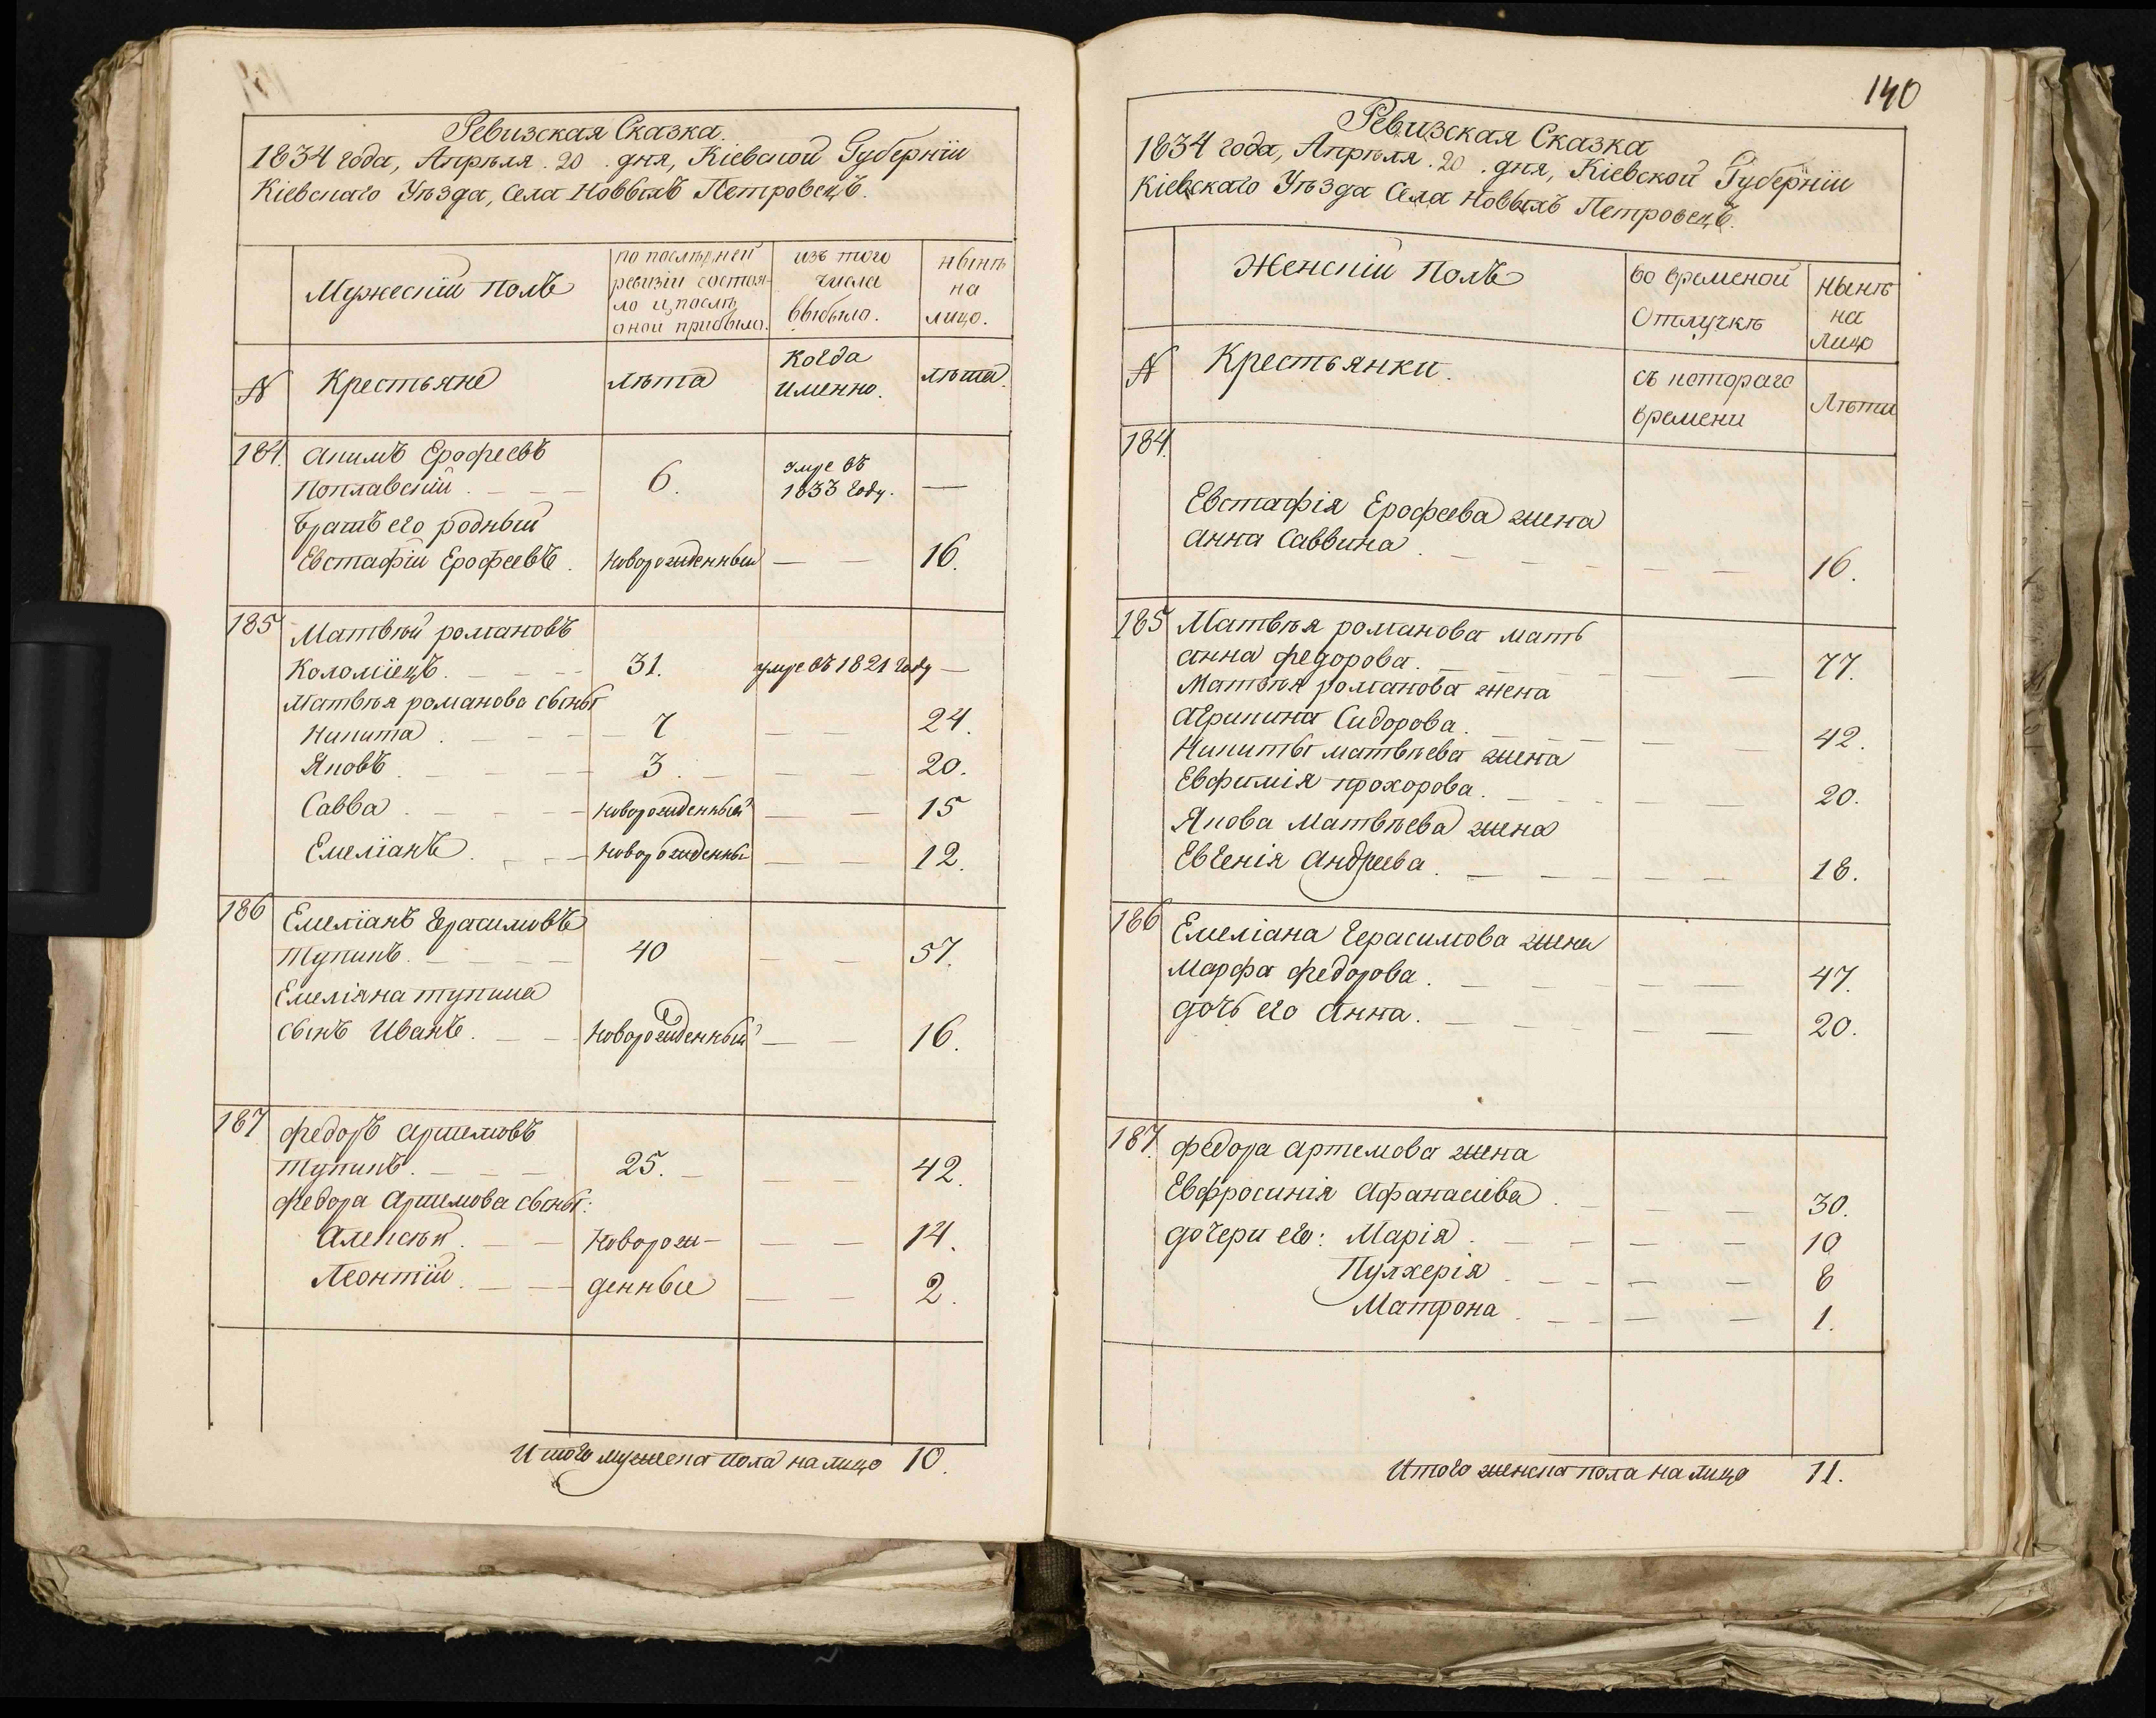 Ревизская Сказка.
1834 года, Апрѣля. 20. дня, Кіевской Губерніи
Кіевскаго Уѣзда, Села Новыхъ Петровецъ.
Мужескій Полъ
по послѣдней
ревизіи состоя-
ло и послѣ
оной прибыло.
изъ того
числа
выбыло.
нынѣ
на
лицо.
№
Крестьяне
лѣта
Когда
именно.
лѣта
184.
Акимъ Ерофеевъ
Поплавскій
6.
умре въ
1833 году.
братъ его родный
Евстафій Ерофеевъ.
новорожденный
16.
185
Матвѣй романовъ
Коломіецъ.
31.
умре въ 1821 году
Матвѣя романова сыны
Никита
7
24.
Яковъ
3.
20.
Савва
новорожденный
15
Емеліанъ
новорожденны
12.
186
Емеліанъ Герасимовъ
Тупикъ.
40
57.
Емеліана тупика
сынъ Иванъ.
новорожденный
16.
187
Федоръ Артемовъ
Тупикъ.
25.
42.
Федора Артемова сыны:
Алексѣй
новорож-
14.
Леонтій
денные
2.
Итого мужеска пола на лицо 10.
140
Ревизская Сказка
1834 года, Апрѣля. 20. дня, Кіевской Губерніи
Кіевскаго Уѣзда Села Новыхъ Петровецъ.
Женскій Полъ
во временой
Отлучкѣ
нынѣ
на
лицо
№
Крестьянки.
съ котораго
времени
Лѣта
184.
Евстафія Ерофеева жена
Анна Саввина.
16.
185
Матвѣя романова мать
анна федорова.
77.
Матвѣя романова жена
Агрипина Сидорова.
42.
Никиты матвѣева жена
Евфимія прохорова.
20.
Якова Матвѣева жена
Евгенія Андреева.
18.
186
Емеліана Герасимова жена
Марфа федорова.
47.
дочь его Анна.
20.
187.
Федора Артемова жена
Евфросинія Афанасиева
30.
дочери его: Марія.
10
Пулхерія
8
Матрона
1.
Итого женска пола на лицо 11.